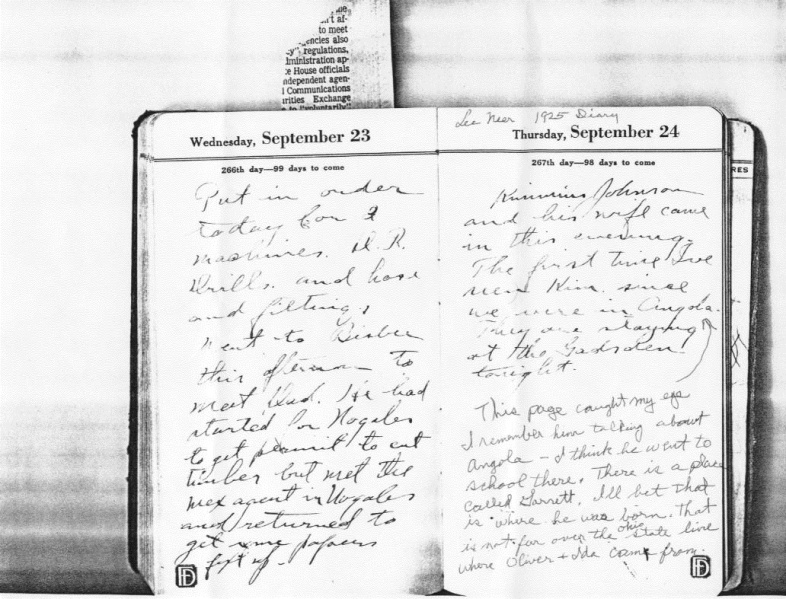 me
n't af-
to meet
encies also
y" regulations,
lministration ap-
e House officials
ndependent agen-
l Communications
urities Exchange
to "voluntarily"
Wednesday, September 23
266th day—99 days to come
Put in order
today for 2
machines. D.R.
Drills. and hose
and fittings
Went to Bisbee
this afternoon to
meet Dud. He had
started for Nogales
to get permit to cut
timber but met the
mex agent in Nogales
and returned to
get some papers
fixt up.
FD
Lee Neer 1925 Diary
Thursday, September 24
267th day—98 days to come
Johnson
and his wife came
in this evening.
The first time I've
seen Kim. since
we were in Angola.
They are staying
at the Gadsden
tonight.
This page caught my eye
I remember him talking about
Angola - I think he went to
school there. There is a place
called Garrett, I'll bet that
is where he was born. That
is not far over the ohio state line
where Oliver + Ida came from.
FD
RES